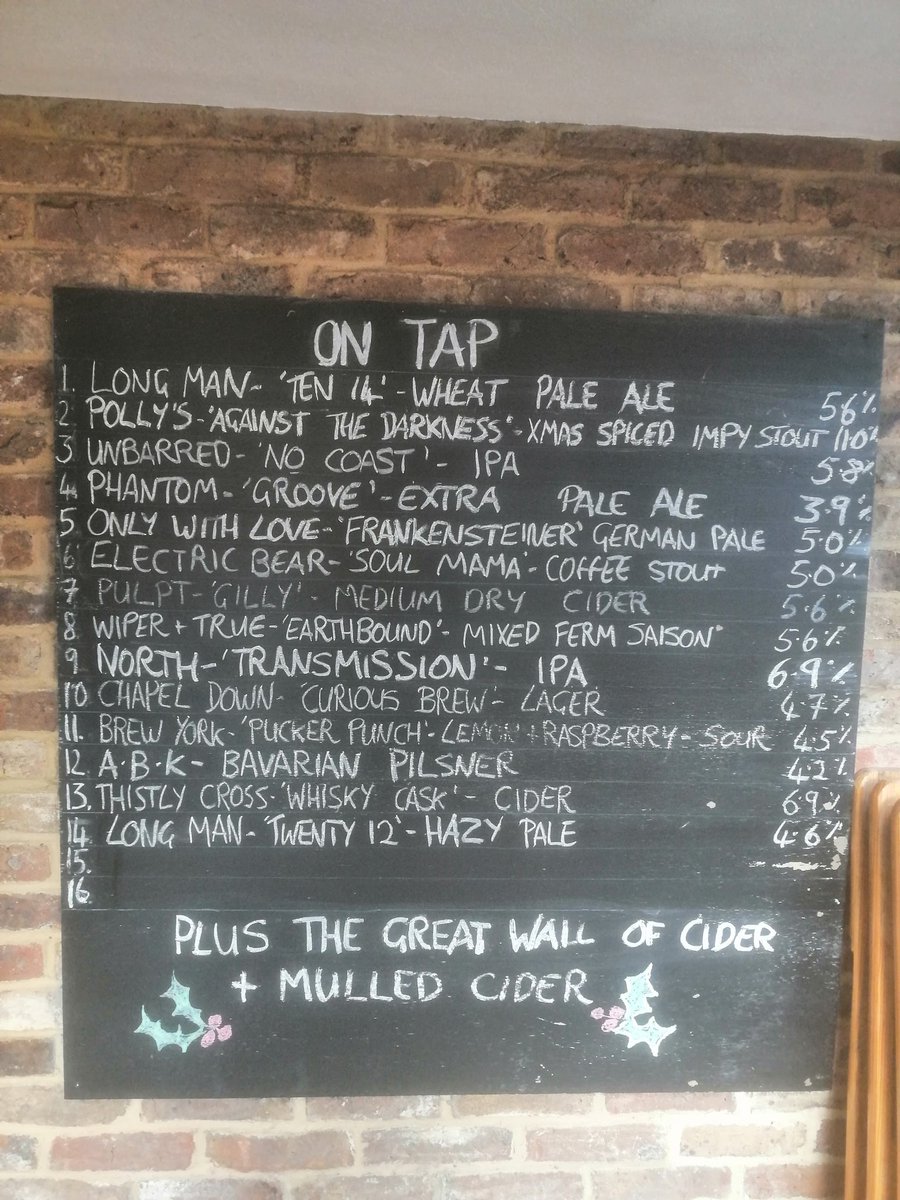 ON TAP
1. LONG MAN - 'TEN 14' - WHEAT PALE ALE 5.6%
2 POLLY'S - 'AGAINST THE DARKNESS' - XMAS SPICED IMPY STOUT 10%
3 UNBARRED - 'NO COAST' - IPA 5.8%
4 PHANTOM - 'GROOVE' - EXTRA PALE ALE 3.9%
5 ONLY WITH LOVE - 'FRANKENSTEINER' GERMAN PALE 5.0%
6 ELECTRIC BEAR - 'SOUL MAMA' - COFFEE STOUT 5.0%
7 PULPT - 'GILLY' - MEDIUM DRY CIDER 5.6%
8 WIPER + TRUE - 'EARTHBOUND' - MIXED FERM SAISON 5.6%
9 NORTH - 'TRANSMISSION' - IPA 6.9%
10 CHAPEL DOWN - 'CURIOUS BREW' - LAGER 4.7%
11. BREW YORK - 'PUCKER PUNCH' - LEMON + RASPBERRY - SOUR 4.5%
12 A.B.K - BAVARIAN PILSNER 4.2%
13. THISTLY CROSS - 'WHISKY CASK' - CIDER 6.9%
14 LONG MAN - 'TWENTY 12' - HAZY PALE 4.6%
15.
16
PLUS THE GREAT WALL OF CIDER
+ MULLED CIDER